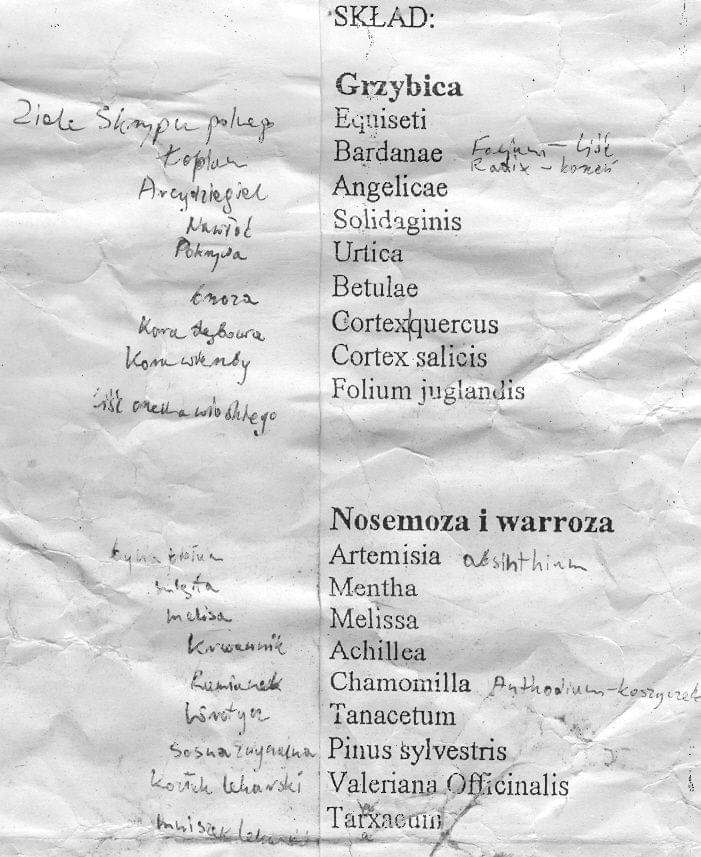 SKŁAD:
Grzybica
Ziele Skrzypu polnego Equiseti
Łopian Bardanae Folium - liść
Radix - korzeń
Arcydzięgiel Angelicae
Nawłoć Solidaginis
Pokrzywa Urtica
brzoza Betulae
Kora dębowa Cortex|quercus
Kora wierzby Cortex salicis
liść orzecha włoskiego Folium juglandis
Nosemoza i warroza
Artemisia absinthium
mięta Mentha
melisa Melissa
Krwawnik Achillea
Rumianek Chamomilla Anthodium - koszyczek
Wrotycz Tanacetum
Sosna zwyczajna Pinus sylvestris
kozłek lekarski Valeriana Officinalis
mniszek lekarski Tarxacum
a